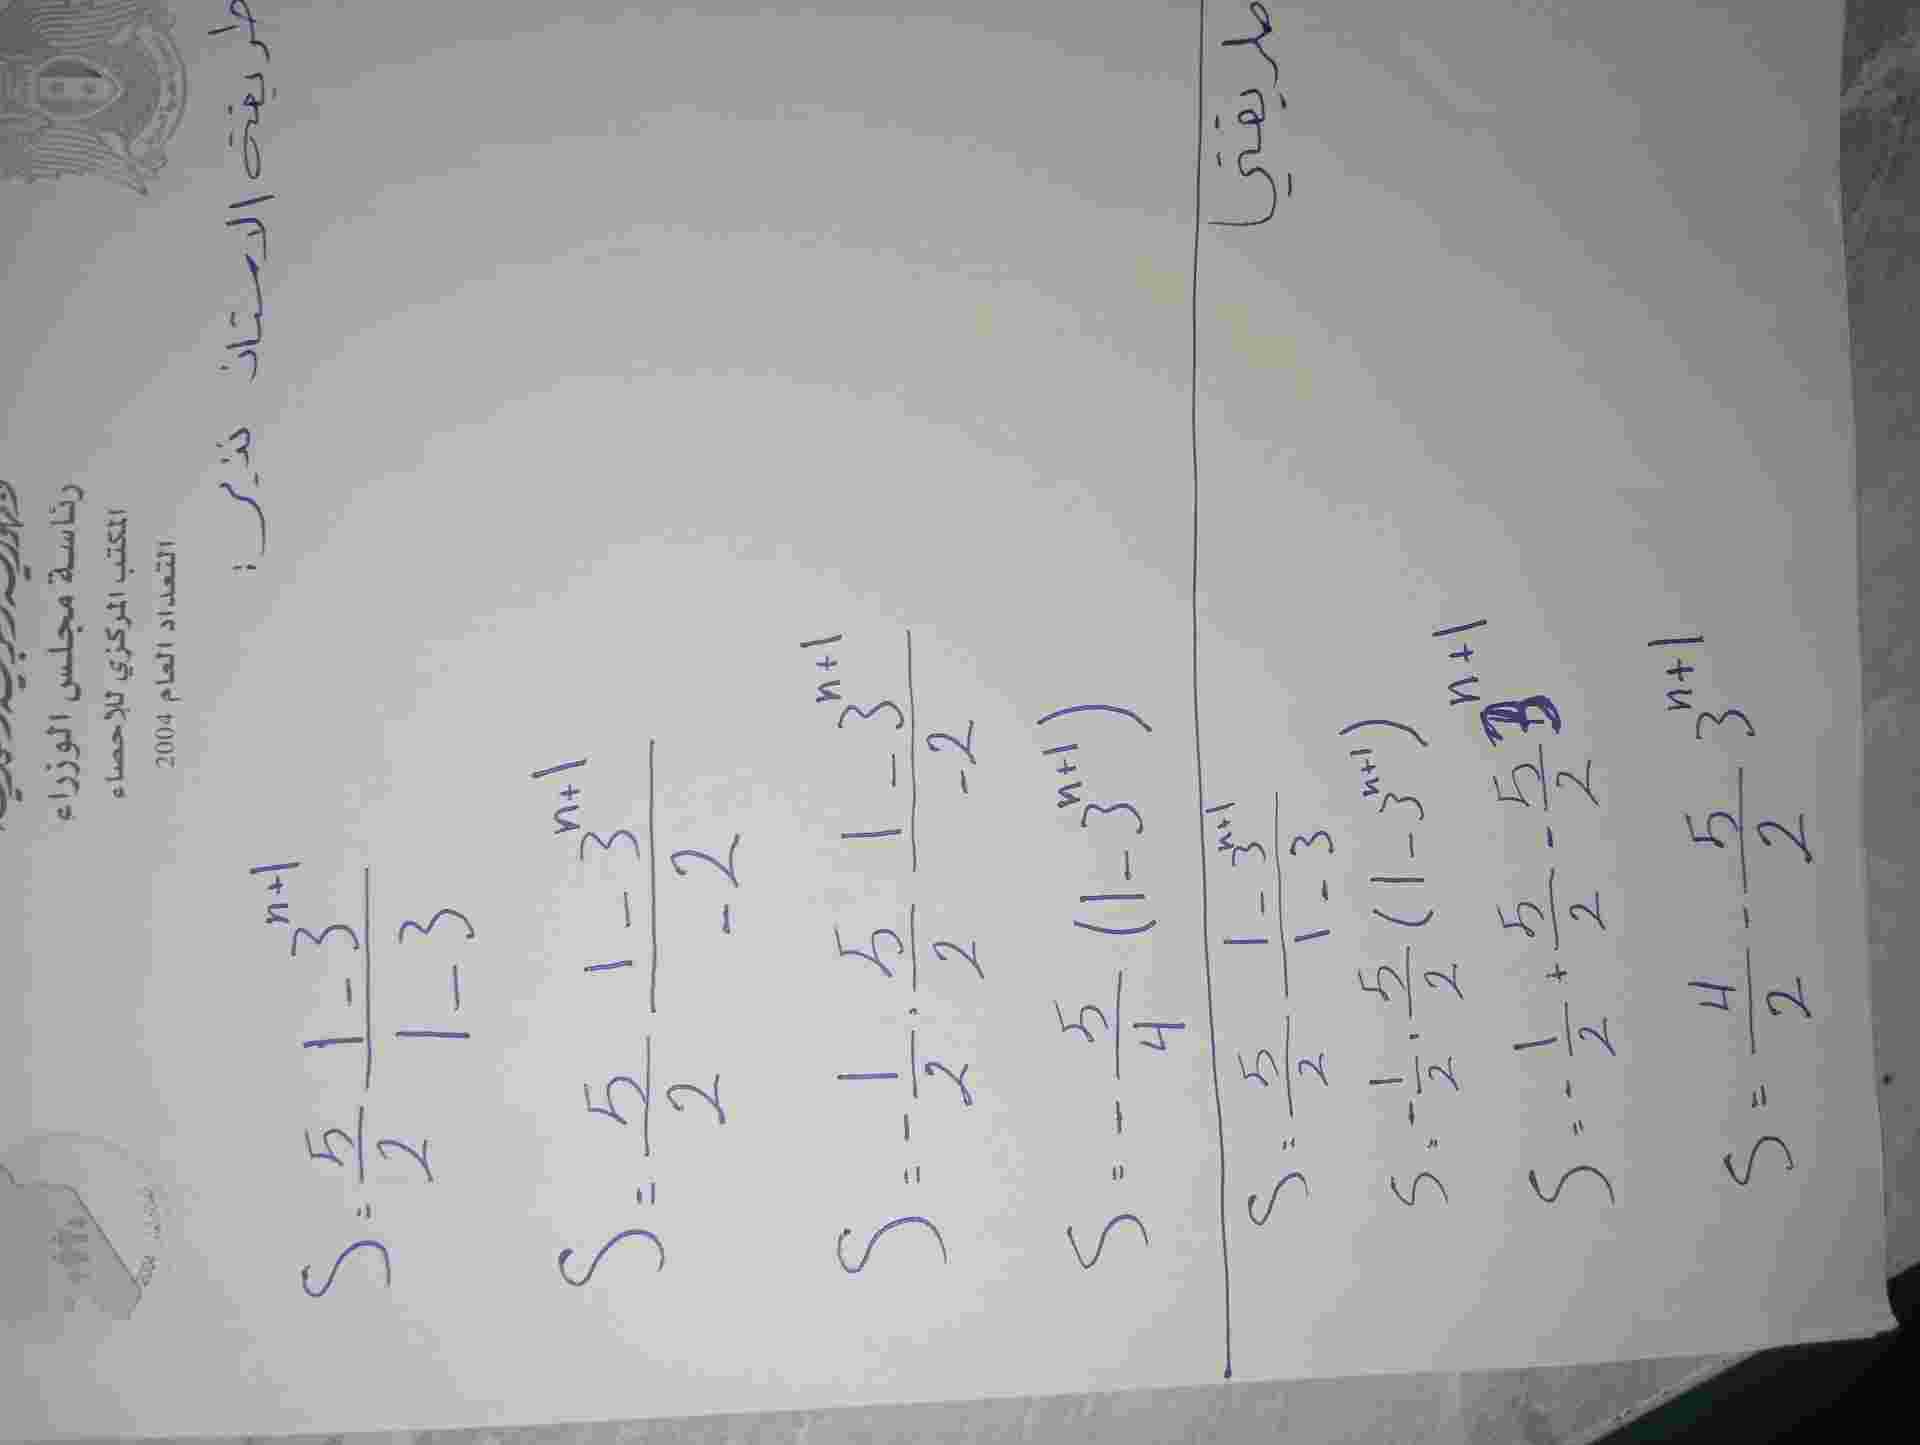 رئاسة مجلس الوزراء
المكتب المركزي للإحصاء
التعداد العام 2004
طريقة الاستاذ نذير :
S = 5/2 (1 - 3^(n+1))/(1 - 3)
S = 5/2 (1 - 3^(n+1))/(-2)
S = - 1/2 · 5/2 (1 - 3^(n+1))/(-2)
S = - 5/4 (1 - 3^(n+1))
طريقتي
S = 5/2 (1 - 3^(n+1))/(1 - 3)
S = - 1/2 · 5/2 (1 - 3^(n+1))
S = - 1/2 + 5/2 - 5/2 3^(n+1)
S = 4/2 - 5/2 3^(n+1)